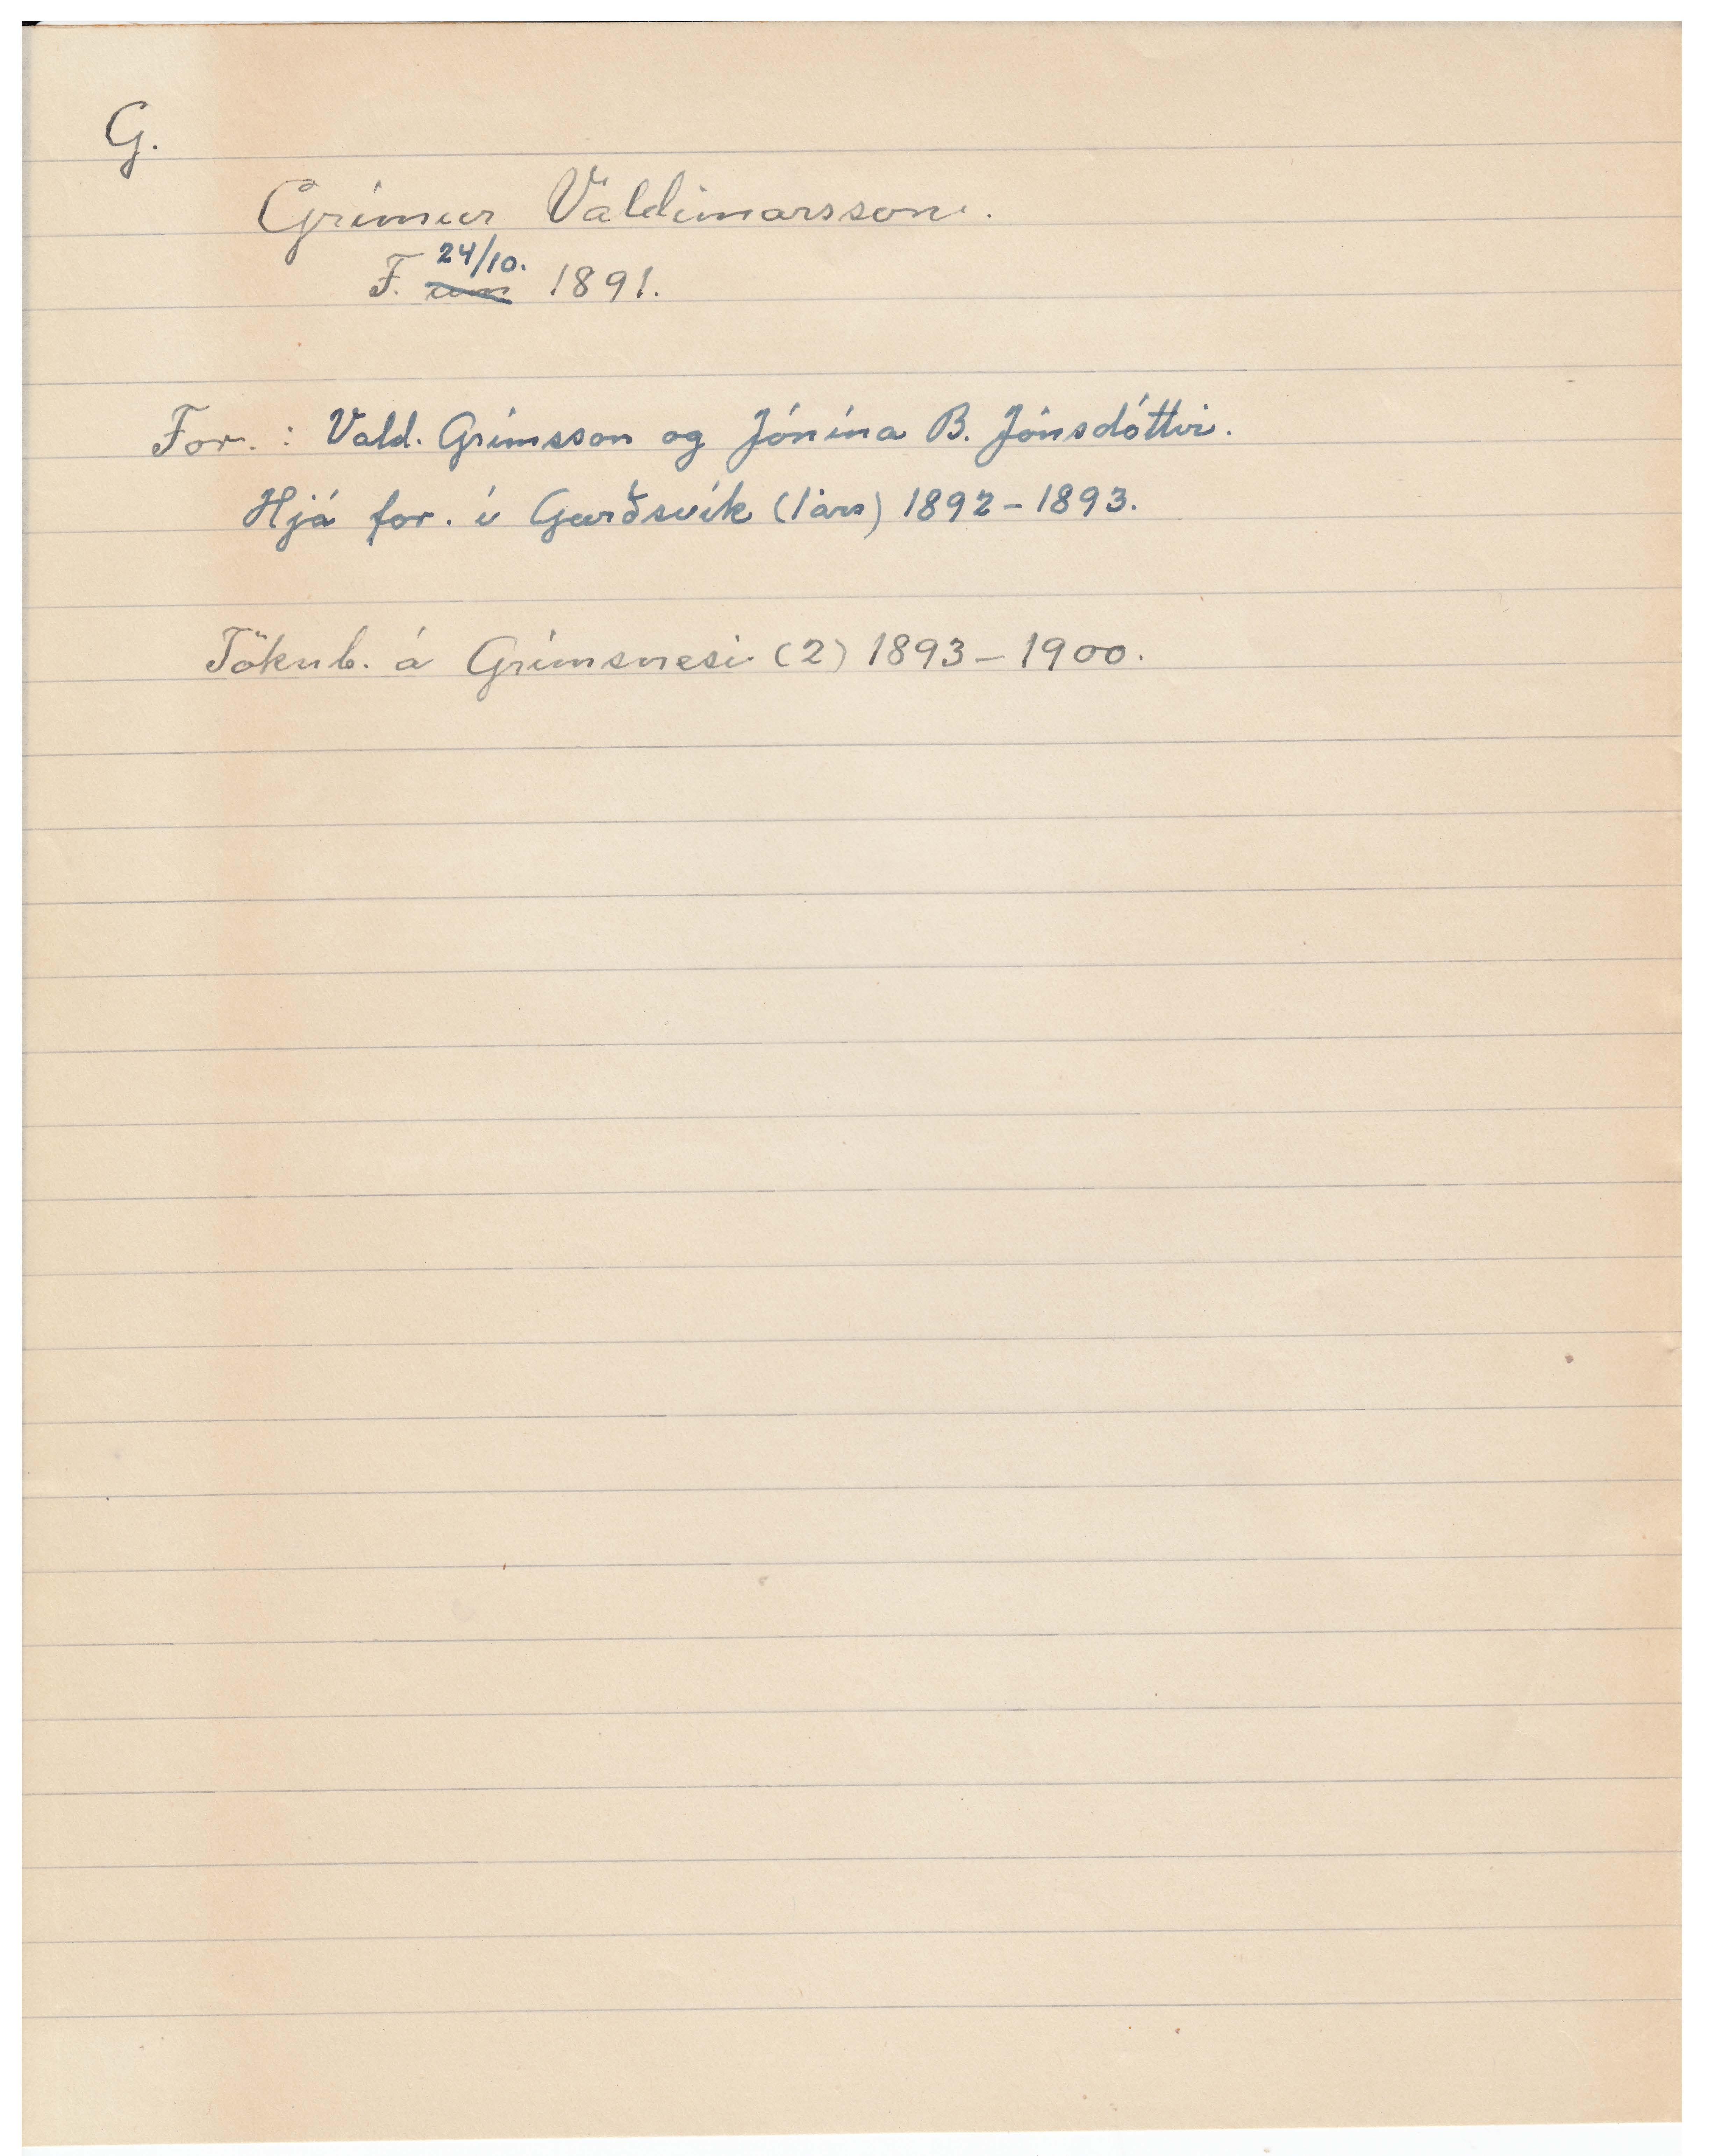 G.
Grímur Valdimarsson.
24/10.
F. um 1891.
For. : Vald. Grímsson og Jónína B. Jónsdóttir.
Hjá for. í Garðsvík (1 árs) 1892-1893.
Tökub. á Grímsnesi (2) 1893-1900.